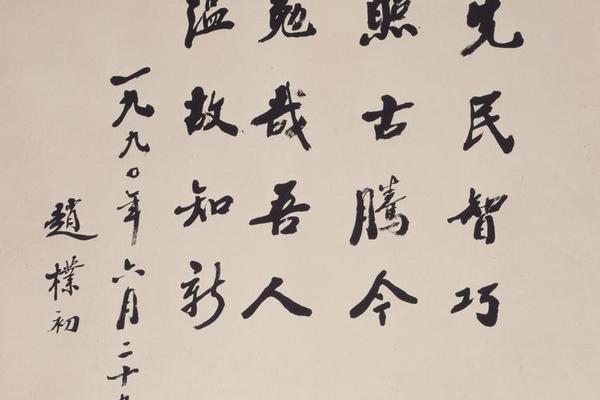 先民智巧
照古腾今
勉哉吾人
温故知新
一九九〇年六月二十
趙樸初